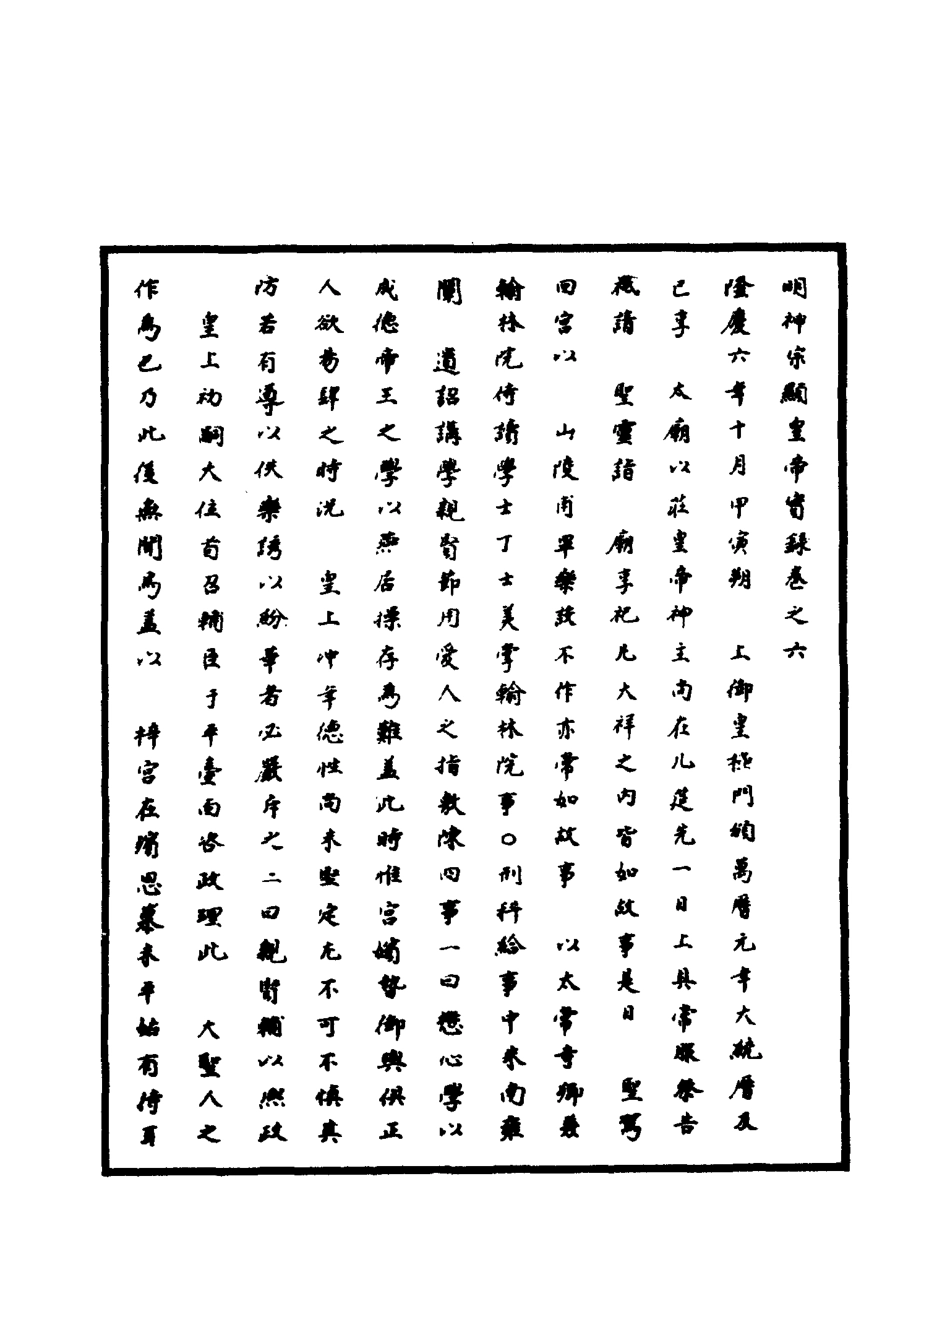 明神宗顯皇帝實錄卷之六
隆慶六年十月甲寅朔　上御皇極門頒萬曆元年大統曆及
己享　太廟以莊皇帝神主尚在几筵先一日上具常服祭告
祗請　聖靈詣　廟享祀凡大祥之內皆如故事是日　聖駕
回宮以　山陵甫畢樂設不作亦常如故事　以太常寺卿兼
翰林院侍讀學士丁士美掌翰林院事○刑科給事中朱南雍
闡　遺詔講學親賢節用愛人之指敷陳四事一曰懋心學以
成德帝王之學以燕居操存為難蓋此時惟宮嬪暬御與俱正
人欲易肆之時況　皇上冲年德性尚未堅定尤不可不慎其
防若有導以佚樂誘以紛華者必嚴斥之二曰親賢輔以熙政
皇上初嗣大位首召輔臣于平臺面咨政理此　大聖人之
作為已乃此後無聞焉蓋以　梓宮在殯思慕未平始有待耳